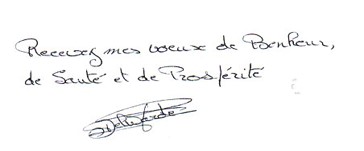 Recevez mes voeux de Bonheur,
de Santé et de Prospérité